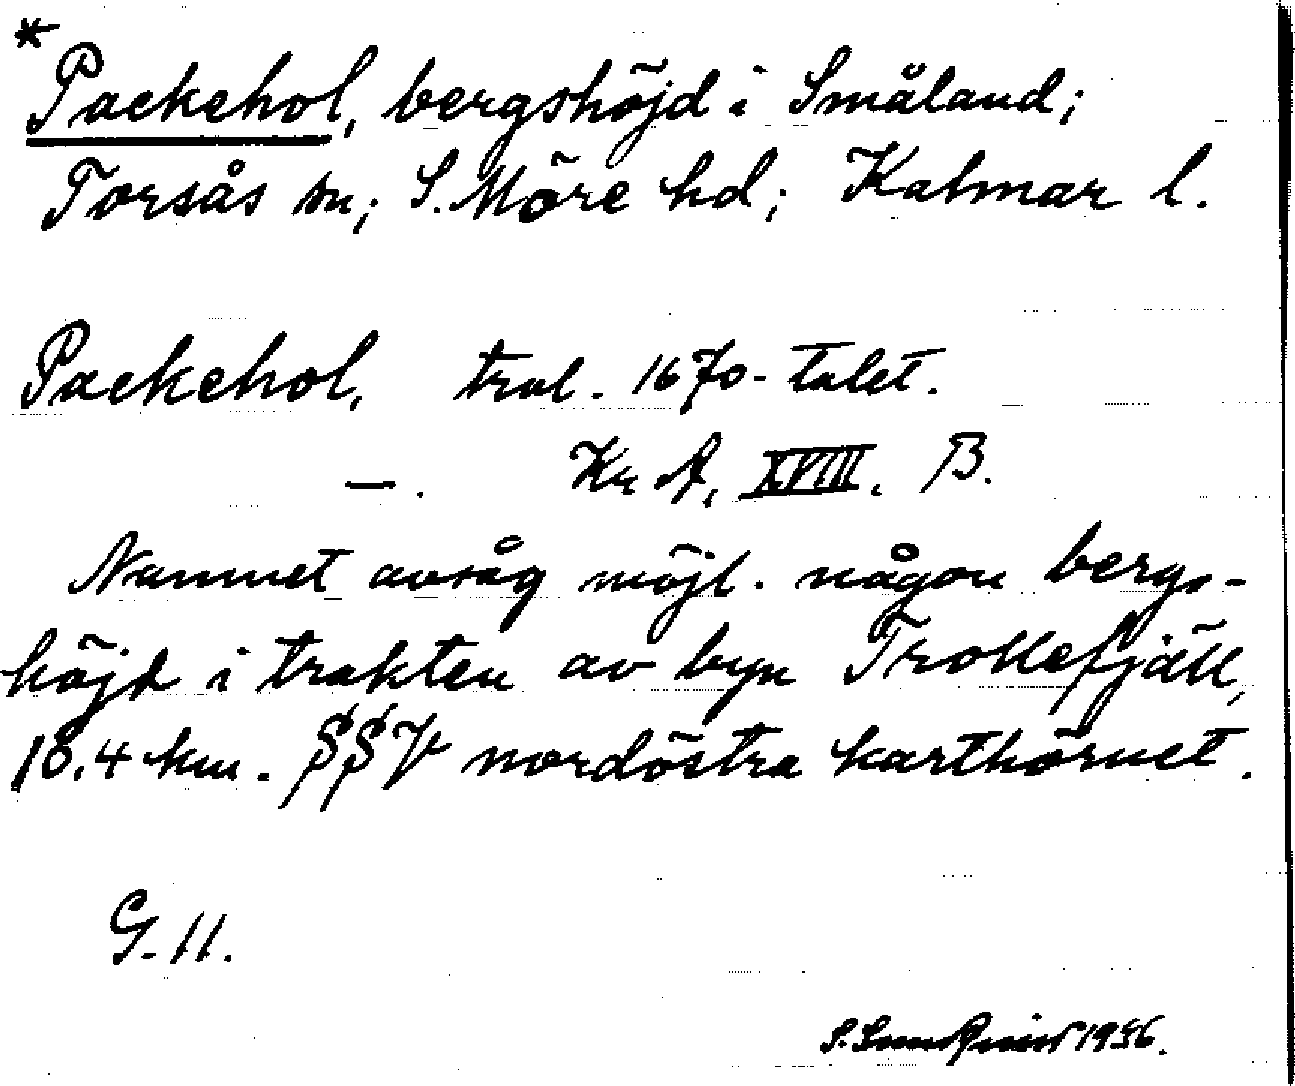 *
Packehol, bergshöjd i Småland;
Torsås sn; S. Möre hd; Kalmar l.
Packehol, trol. 1670-talet.
—. Kr A, XVIII. B.
Namnet avsåg möjl. någon bergs-
höjd i trakten av byn Trollefjäll,
18.4 km. SSV nordöstra karthörnet.
G. 11.
S. 1956.